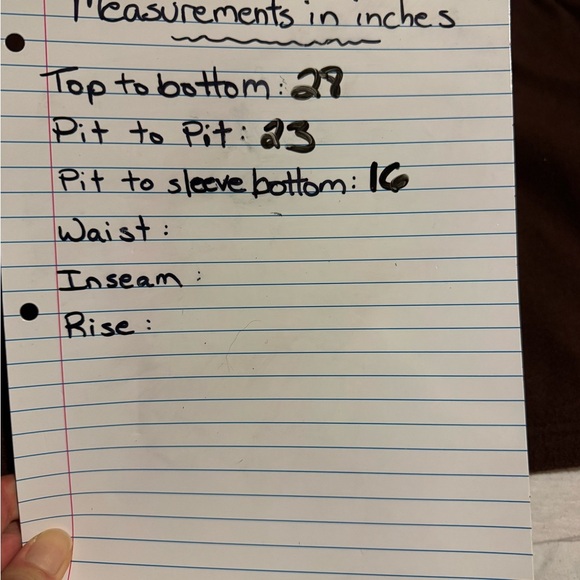 Measurements in inches
Top to bottom: 28
Pit to Pit: 23
Pit to sleeve bottom: 16
Waist:
Inseam:
Rise: